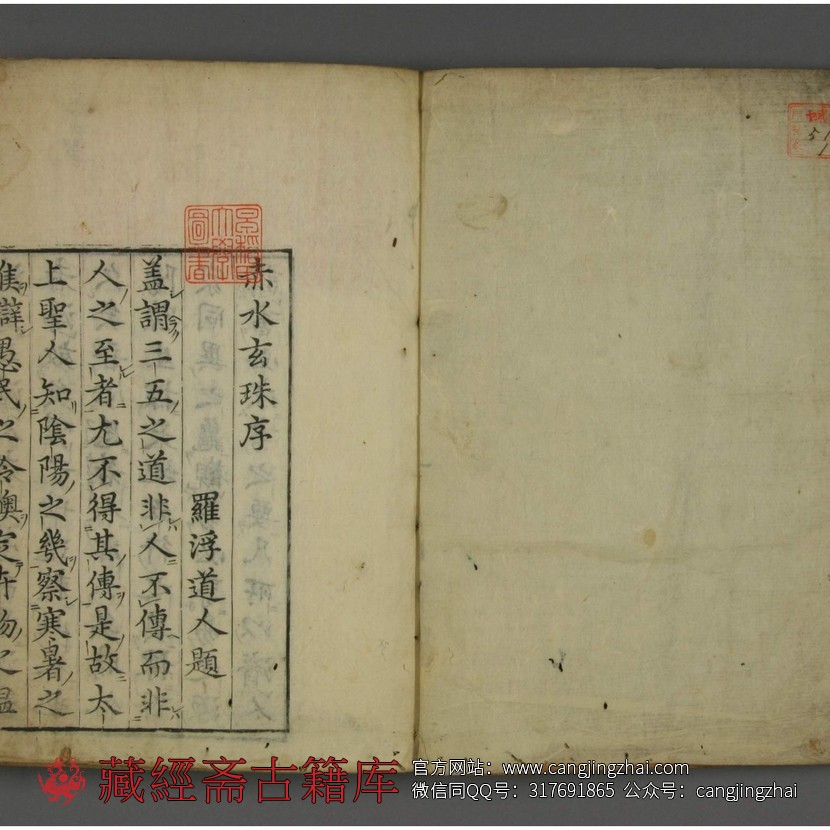 赤水玄珠序
羅浮道人題
蓋謂三五之道非人不傳而非
人之至者尤不得其傳是故太
上聖人知陰陽之幾察寒暑之
愚民之冷燠定卉物之温
早稻田大學圖書
藏經斋古籍库
官方网站：www.cangjingzhai.com
微信同QQ号：317691865 公众号：cangjingzhai